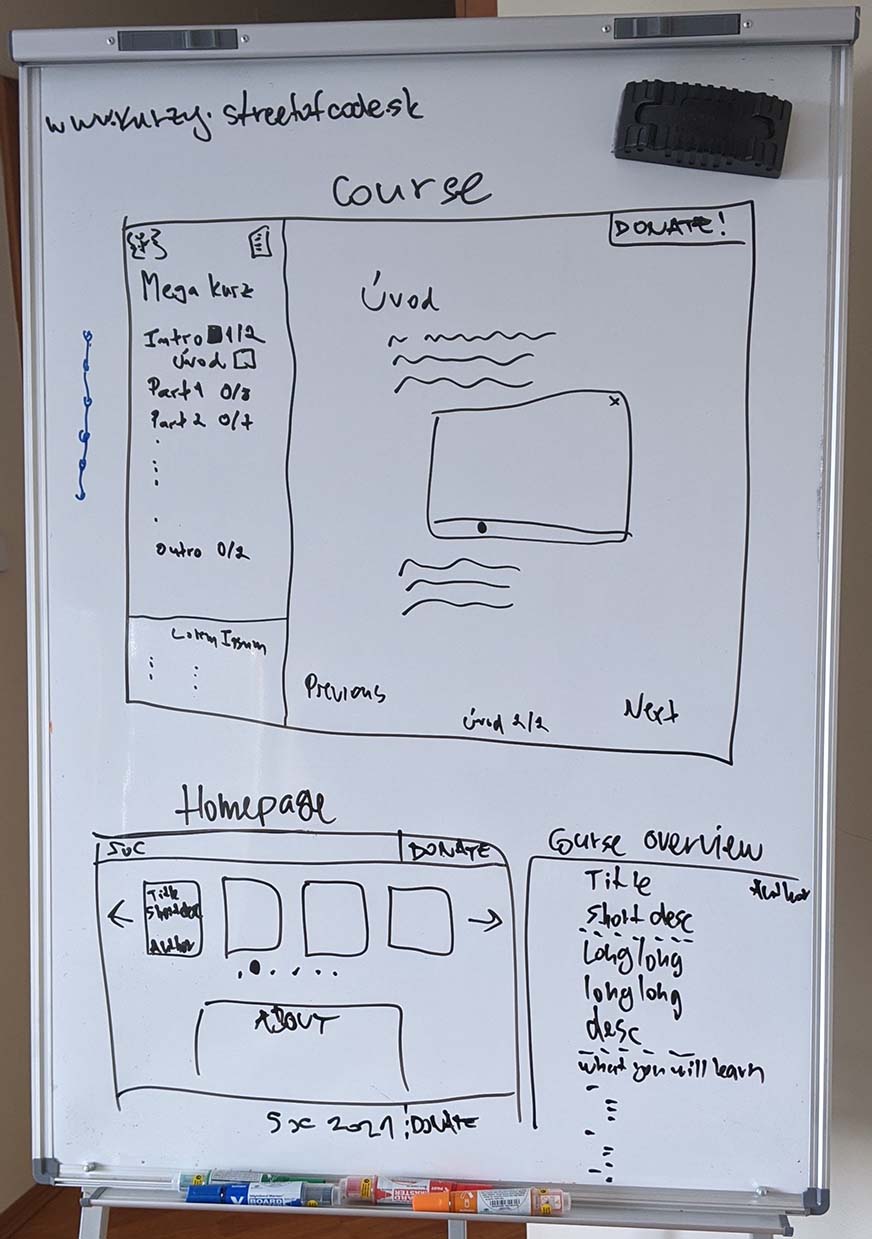 www.kurzy.streetofcode.sk
Course
DONATE!
Mega kurz
Intro 1/2
Úvod
Part 1 0/3
Part 2 0/7
Outro 0/2
Lorem Ipsum
Úvod
x
Previous
Úvod 2/2
Next
Homepage
SOC
DONATE
Title
Short desc
Author
ABOUT
SOC 2021 DONATE
Course overview
Title
Author
Short desc
Long long
long long
desc
what you will learn